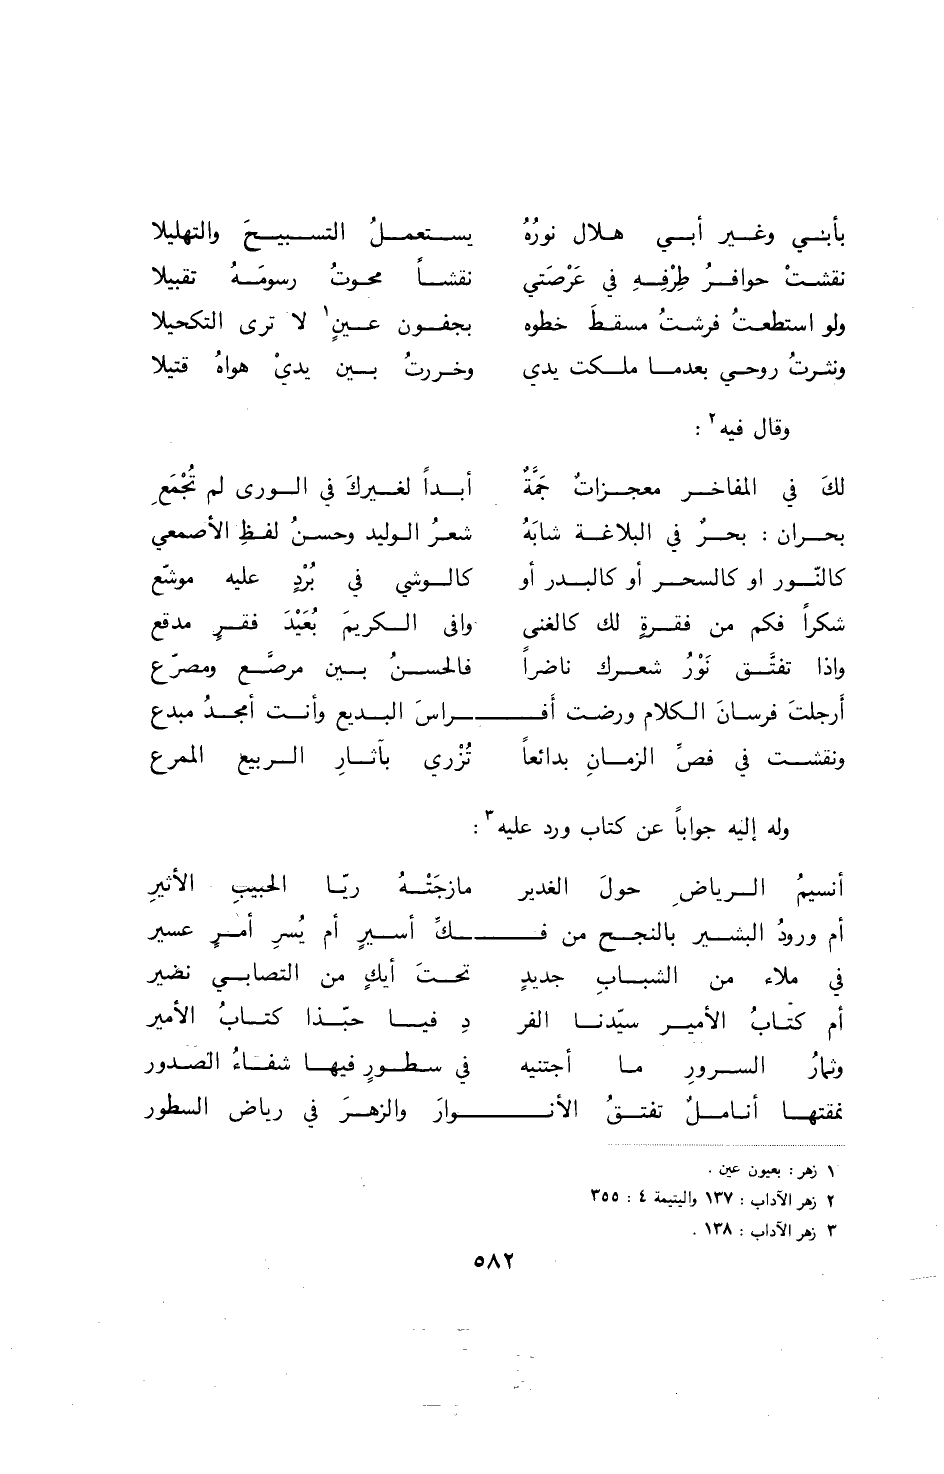 بأبي وغير أبي هلال نورُهُ يستعملُ التسبيحَ والتهليلا
نقشتْ حوافرُ طِرْفِهِ في عَرْصَتي نقشاً محوتُ رسومَهُ تقبيلا
ولو استطعتُ فرشتُ مسقطَ خطوه بجفون عينٍ١ لا ترى التكحيلا
ونثرتُ روحي بعدما ملكت يدي وخررتُ بين يديْ هواهُ قتيلا
وقال فيه٢ :
لكَ في المفاخر معجزاتٌ جَمَّةٌ أبداً لغيركَ في الورى لم تُجْمَعِ
بحران : بحرٌ في البلاغة شابَهُ شعرُ الوليد وحسنُ لفظِ الأصمعي
كالنّور او كالسحر أو كالبدر أو كالوشي في بُرْدٍ عليه موشّعِ
شكراً فكم من فقرةٍ لك كالغنى وافى الكريمَ بُعَيْدَ فقرٍ مدقعِ
واذا تفتَّق نَوْرُ شعرك ناضراً فالحسنُ بين مرصَّع ومصرّع
أرجلتَ فرسانَ الكلام ورضت أفـراسَ البديع وأنت أمجدُ مبدع
ونقشت في فصِّ الزمانِ بدائعاً تُزْري بآثارِ الربيع الممرع
وله إليه جواباً عن كتاب ورد عليه٣ :
أنسيمُ الرياضِ حولَ الغدير مازجَتْهُ ريّا الحبيبِ الأثيرِ
أم ورودُ البشير بالنجح من فـكِّ أسيرٍ أم يُسرِ أمرٍ عسير
في ملاء من الشبابِ جديدٍ تحتَ أيكٍ من التصابي نضير
أم كتابُ الأمير سيّدنا الفر دِ فيا حبّذا كتابُ الأمير
وثمارُ السرورِ ما أجتنيه في سطورٍ فيها شفاءُ الصّدور
نمقتها أناملٌ تفتقُ الأنـوارَ والزهرَ في رياض السطور
١ زهر : بعيون عين .
٢ زهر الآداب : ١٣٧ واليتيمة ٤ : ٣٥٥
٣ زهر الآداب : ١٣٨ .
٥٨٢